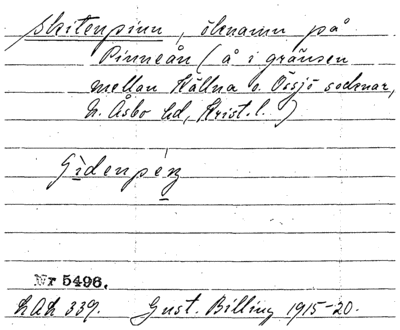 Skitenpinn, öknamn på
Pinneån (å i gränsen
mellan Källna o. Össjö socknar,
N. Åsbo hd, Krist.l.)
Nr 5496.
LAL 339. Gust. Billing 1915-20.